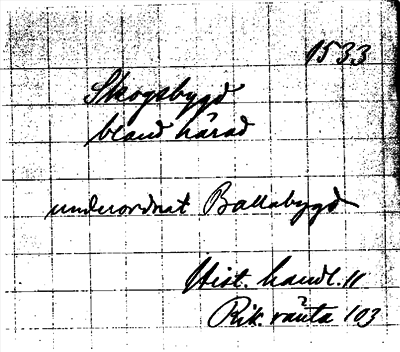 1533
Skogsbygd
bland härad
underordnat Ballabygd
Hist. handl. 11
Rik. ränta 103